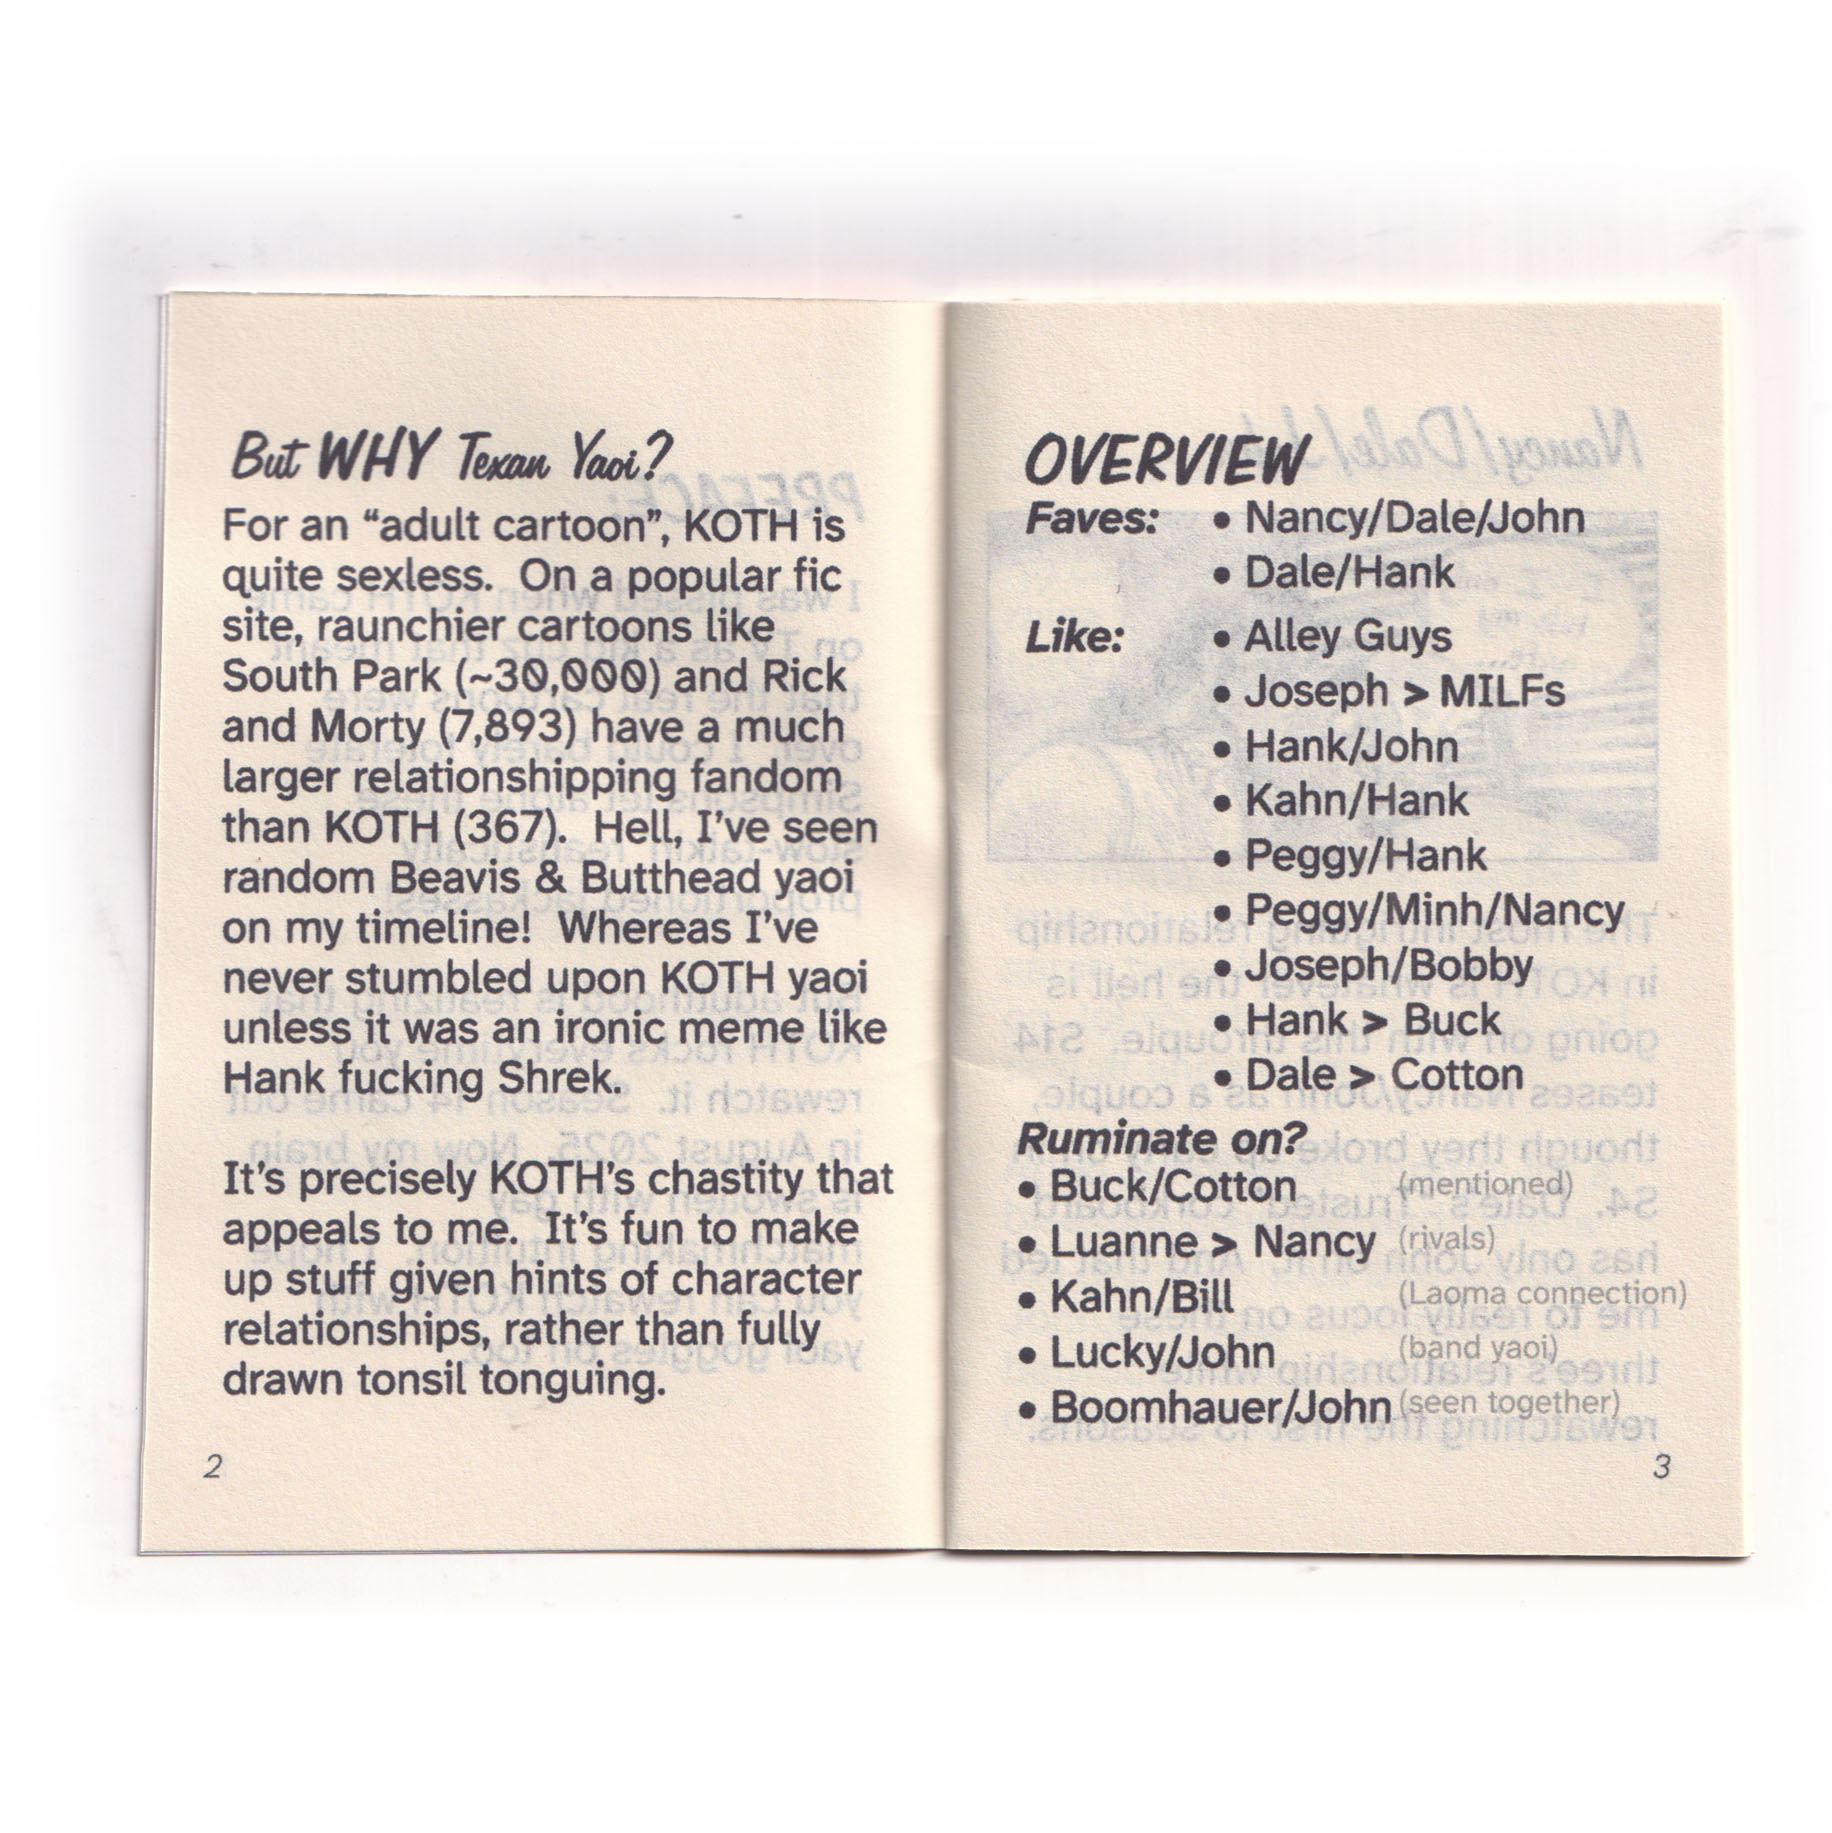 But WHY Texan Yaoi?
For an “adult cartoon”, KOTH is
quite sexless.  On a popular fic
site, raunchier cartoons like
South Park (~30,000) and Rick
and Morty (7,893) have a much
larger relationshipping fandom
than KOTH (367).  Hell, I’ve seen
random Beavis & Butthead yaoi
on my timeline!  Whereas I’ve
never stumbled upon KOTH yaoi
unless it was an ironic meme like
Hank fucking Shrek.
It’s precisely KOTH’s chastity that
appeals to me.  It’s fun to make
up stuff given hints of character
relationships, rather than fully
drawn tonsil tonguing.
2
OVERVIEW
Faves: • Nancy/Dale/John
• Dale/Hank
Like: • Alley Guys
• Joseph > MILFs
• Hank/John
• Kahn/Hank
• Peggy/Hank
• Peggy/Minh/Nancy
• Joseph/Bobby
• Hank > Buck
• Dale > Cotton
Ruminate on?
• Buck/Cotton (mentioned)
• Luanne > Nancy (rivals)
• Kahn/Bill (Laoma connection)
• Lucky/John (band yaoi)
• Boomhauer/John (seen together)
3